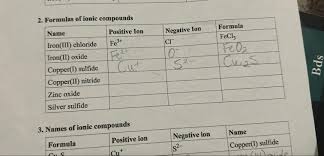 2. Formulas of ionic compounds
Name Positive ion Negative ion Formula
Iron(III) chloride Fe³⁺ Cl⁻ FeCl₃
Iron(II) oxide Fe²⁺ O FeO₂
Copper(I) sulfide Cu⁺ S²⁻ Cu₂S
Copper(II) nitride
Zinc oxide
Silver sulfide
3. Names of ionic compounds
Formula Positive ion Negative ion Name
Cu₂S Cu⁺ S²⁻ Copper(I) sulfide
Bds